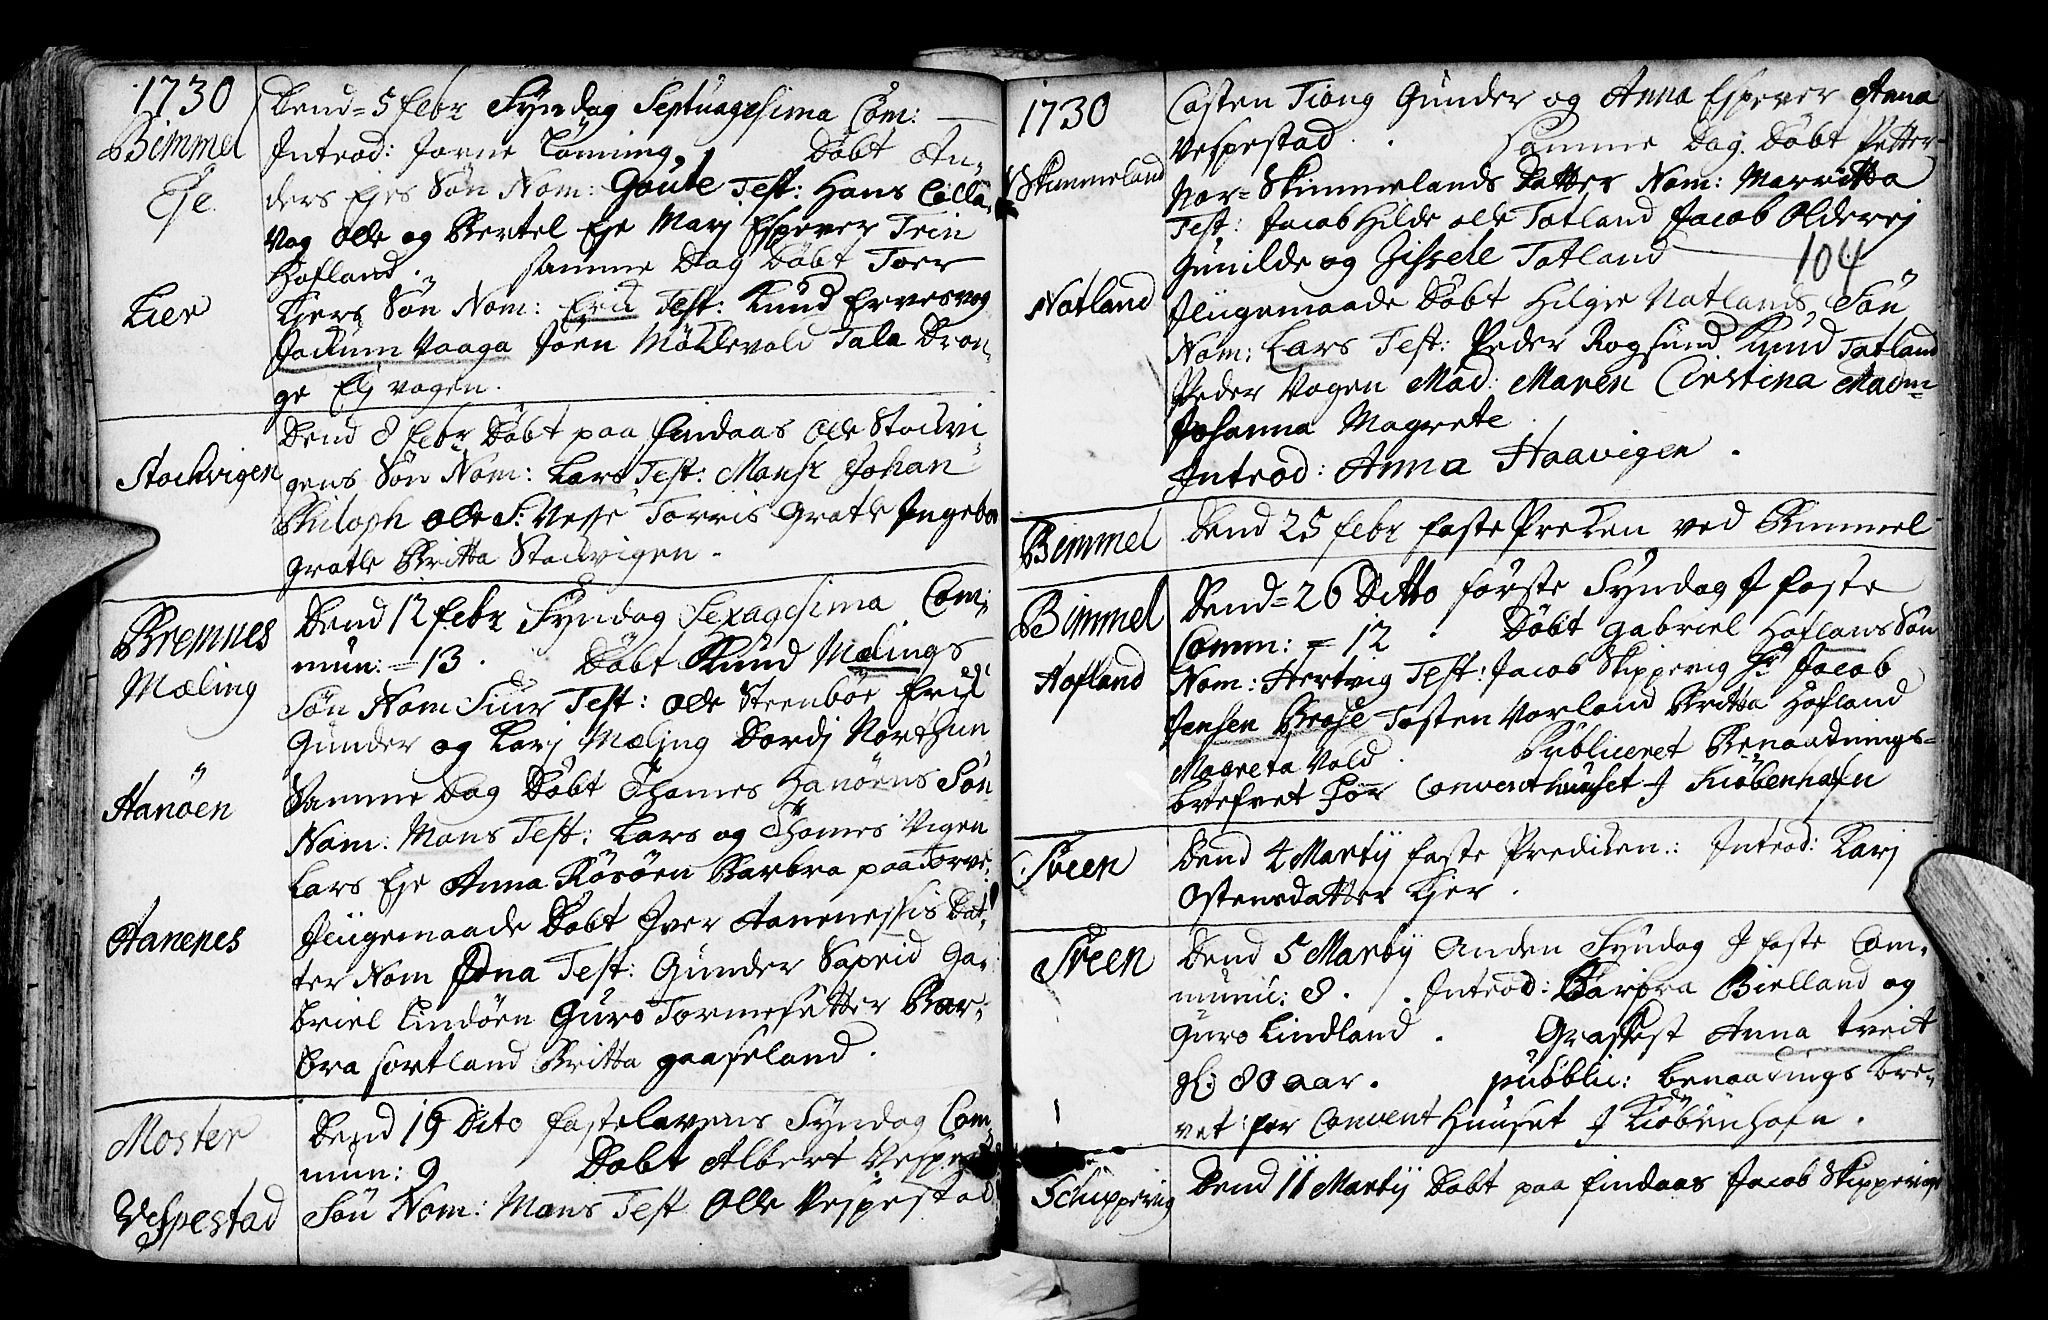 1730
Bimmel
Eje
Kier
Stockvigen
Bremnes
Mæling
Hanöen
Hanenes
Moster
Vespestad
Dend= 5 Febr Syndag Septuagesima Com:
Introd: Torne Tömning. Döbt An-
ders Ejes Sön Nom: Goute Test: Hans
Vog Olle og Bertel Eje Marj Espever Trin
Hofland. Samme Dag Döbt Toer
Kiers Sön Nom: Erik Test: Knud Ervesvog
Jockum Vaaga Joen Möklevold Tala Dron-
ge Elj vogen.
Dend 8 Febr Döbt paa Findaas Olle Stockvi
gens Sön Nom: Lars Test: Monsr Johan
Philoph Olle S: Vesse Torris Grotle Ingebor
Grotle Britta Stockvigen.
Dend 12 Febr Syndag Sexagesima Com:
mun: = 13. Döbt Knud Mælings
Sön Nom Siur Test: Olle Steenböe Erik
Gunder og Karj Mæling Dordj Northun
Samme Dag Döbt Thomes Hanöens Sön
Nom: Mons Test: Lars og Thomes Vigen
Lars Eje Anna Rösöen Barbra paa Torve
Jligemaade Döbt Iver Hanenessis Dat-
ter Nom Edna Test: Gunder Sapreid Ga-
briel Lindöen Guro Tormesetter Bar-
bra Sortland Britta gaaseland.
Dend 19 Dito Fastelavens Syndag Com
mun: 9 Döbt Albert Vespes
Sön Nom: Mons Test Olle Vespestad
1730
Skimmeland
Notland
Bemmel
Bimmel
Hofland
Sveen
Sveen
Schippevig
Casten Tiong Gunder og Anna Espever Anna
Vespestad. Samme Dag Döbt Petter
Nor= Skimmelands Datter Nom: Marritta
Test: Jacob Hilde Olle Totland Jacob Olderej
Gunilde og Zissele Totland
104
Jligemaade Döbt Hilge Notlands Sön
Nom: Lars Test: Peder Rogsund Knud Totland
Peder Vogen Mad: Maren Cirstina Madm-
Johanna Magrete
Introd: Anna Haavigen.
Dend 25 Febr Faste Preken ved Bimmel
Dend= 26 Ditto förste Syndag J faste
Comm: = 12. Döbt Gabriel Hoflans Sön
Nom: Hertvig Test: Jacob Skippevig Hr Jacob
Jensen Brose Tosten Vorland Britta Hofland
Magreta Vold. Publiceret Benaadnings=
brefvet for Conventhuuset J Kiöbenhafn
Dend 4 Martij faste Predicken.: Introd: Karj
Ostensdatter Kier.
Dend 5 Martij Anden Syndag J faste Com-
muni: 8. Introd: Barbra Bielland og
Guro Lindland. Grafæst Anna treit
gl: 80 aar. Pubblic: benaadings bre-
vet for Convent Huuset J Kiöbenhafn.
Dend 11 Martij Döbt paa Findaas Jacob Skippevigs